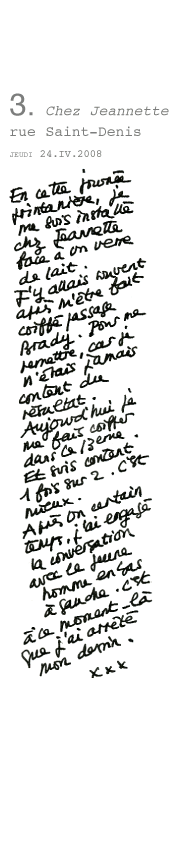 3. Chez Jeannette
rue Saint-Denis
JEUDI 24.IV.2008
En cette journée
printanière, je
me suis installé
chez Jeannette
face à un verre
de lait.
J'y allais souvent
après m'être fait
coiffé passage
Brady. Pour me
remettre, car je
n'étais jamais
content du
résultat.
Aujourd'hui je
me fais coiffer
dans le 13ème.
Et suis content.
1 fois sur 2. C'est
mieux.
Après un certain
temps, j'ai engagé
la conversation
avec le jeune
homme en bas
à gauche. C'est
à ce moment-là
que j'ai arrêté
mon dessin.
xxx